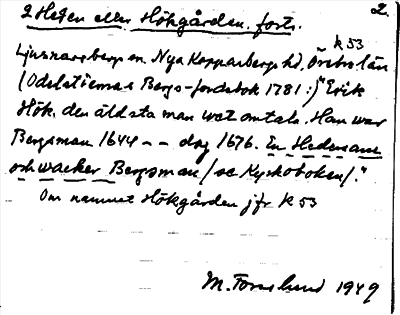 2 Heden eller Hökgården, forts. 2.
k 53
Ljusnarsbergs sn. Nya Kopparbergs hd, Örebro län
(Odelstiernas Bergs-jordebok 1781:) "Erik
Hök, den äldsta man wet omtala. Han war
Bergsman 1644 -- dog 1676. En Hedersam
och wacker Bergsman/se Kyrkoboken/."
Om namnet Hökgården jfr k 53
M. Forslund 1949